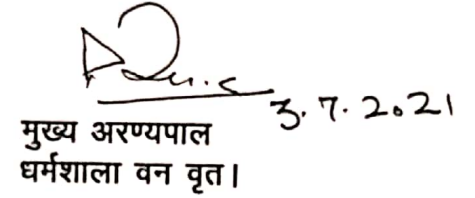 3.7.2021
मुख्य अरण्यपाल
धर्मशाला वन वृत।